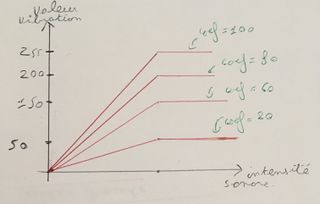 Valeur
vibration
coef = 100
255
coef = 80
200
coef = 60
150
coef = 20
50
intensité
sonore